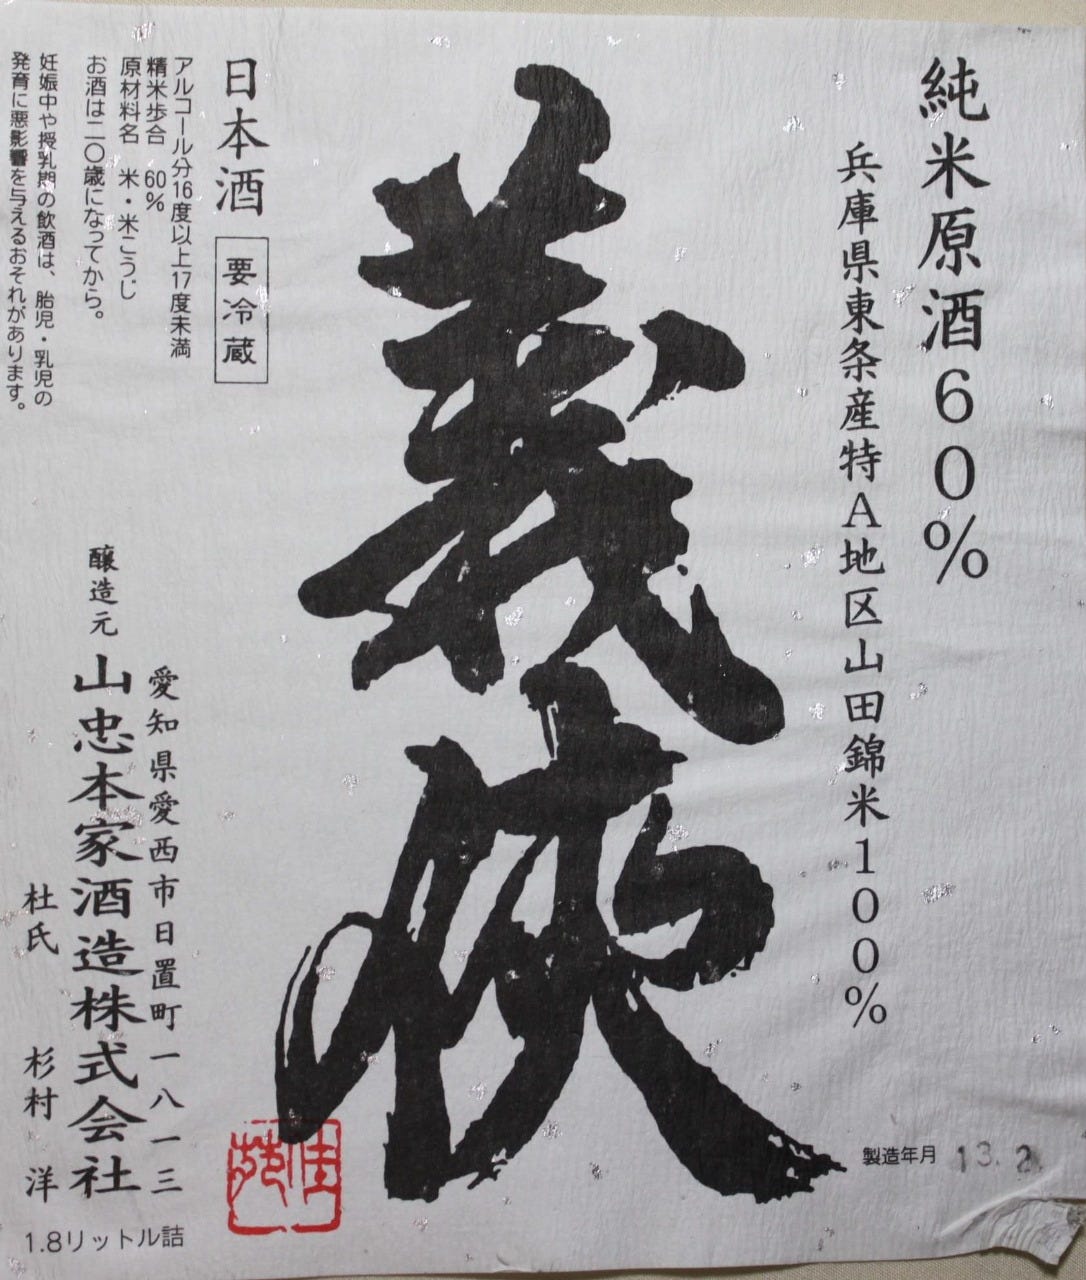 純米原酒60%
兵庫県東条産特A地区山田錦米100%
義侠
日本酒
要冷蔵
アルコール分16度以上17度未満
精米歩合 60%
原材料名 米・米こうじ
お酒は二〇歳になってから。
妊娠中や授乳期の飲酒は、胎児・乳児の
発育に悪影響を与えるおそれがあります。
愛知県愛西市日置町一八一三
醸造元 山忠本家酒造株式会社
杜氏 杉村 洋
1.8リットル詰
製造年月 13.2.